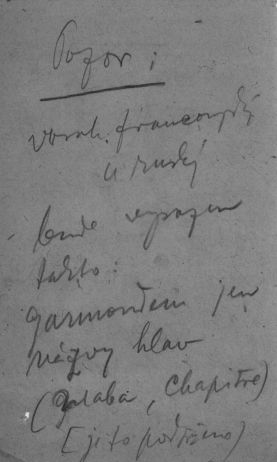 Pozor:
vorak. francouzský
a ruský
bude vysazen
takto:
garmondem jen
názvy hlav
(glaba, chapitre)
[je to podtrženo)